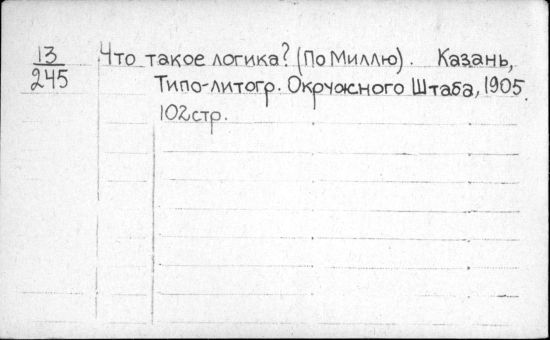 13
245
Что такое логика? (По Миллю). Казань,
Типо-литогр. Окружного Штаба, 1905.
102стр.